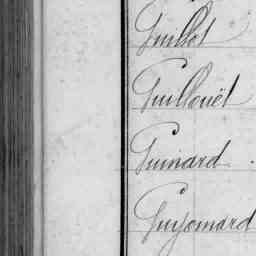 Guillot
Guillouët
Guinard.
Guyomard